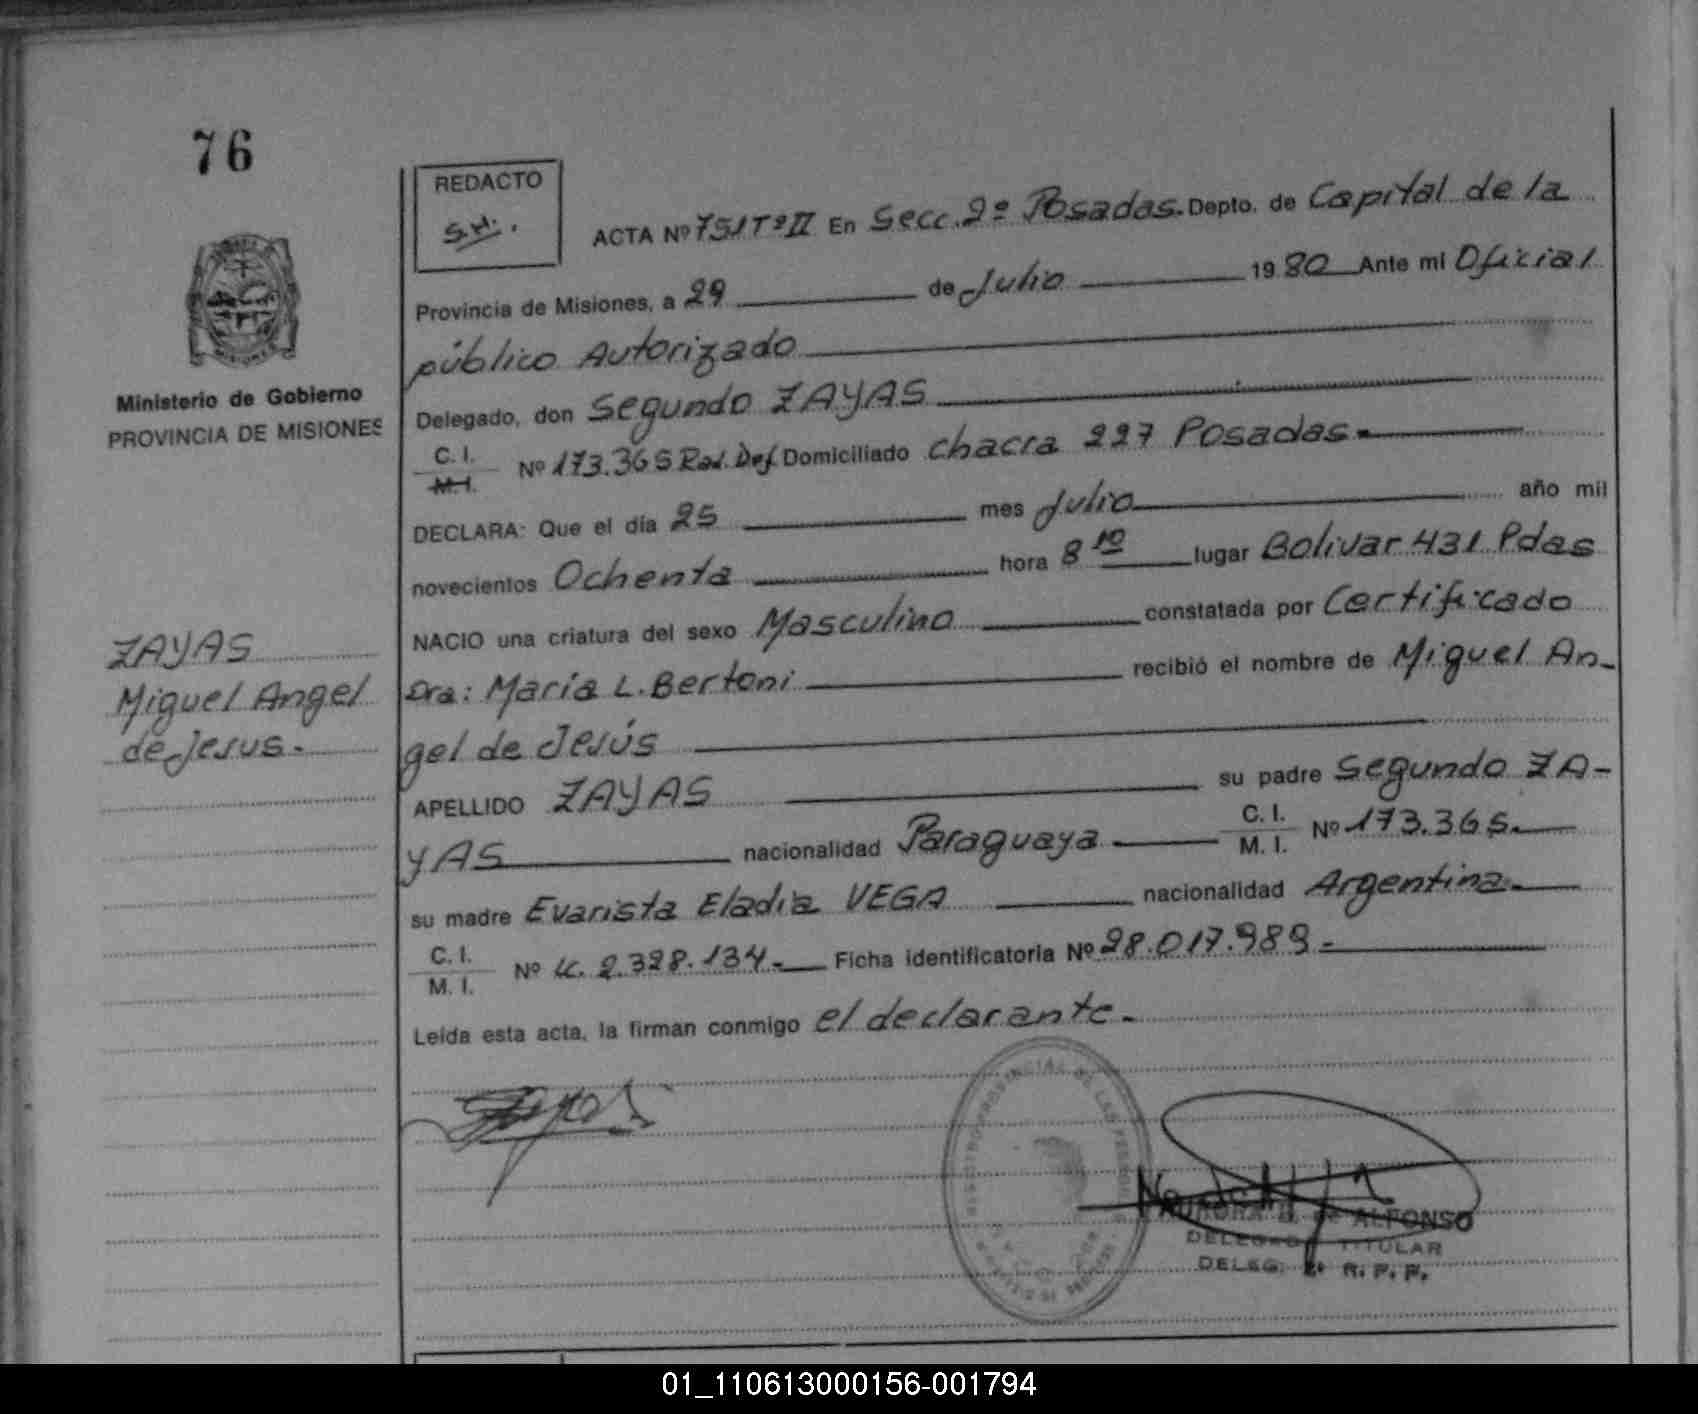 76
REDACTO
S.H.
ACTA Nº 751 Tº II En Secc. 2º Posadas. Depto. de Capital de la
Provincia de Misiones, a 29 de Julio 1980 Ante mi Oficial
público Autorizado
Delegado, don Segundo ZAYAS
C. I.
M. I.
Nº 173.365 Rad. Def. Domiciliado Chacra 227 Posadas.
DECLARA: Que el día 25 mes Julio año mil
novecientos Ochenta hora 8 10 lugar Bolivar 431 Pdas
NACIO una criatura del sexo Masculino constatada por Certificado
Dra: María L. Bertoni recibió el nombre de Miguel An-
gel de Jesús
APELLIDO ZAYAS su padre Segundo ZA-
YAS nacionalidad Paraguaya C. I. M. I. Nº 173.365.
su madre Evarista Eladia VEGA nacionalidad Argentina.
C. I.
M. I.
Nº LC. 2.328.134. Ficha identificatoria Nº 28.017.989.-
Leída esta acta, la firman conmigo el declarante.
Ministerio de Gobierno
PROVINCIA DE MISIONES
ZAYAS
Miguel Angel
de Jesus.
MISIONES
REGISTRO PROVINCIAL DE LAS PERSONAS
DE ALFONSO
DELEGADO TITULAR
DELEG. 2ª R. P. P.
01_110613000156-001794